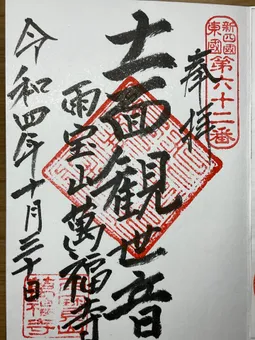 新四國
東國
第六十二番
奉拝
十一面観世音
雨宝山萬福寺
令和四年十月三十日